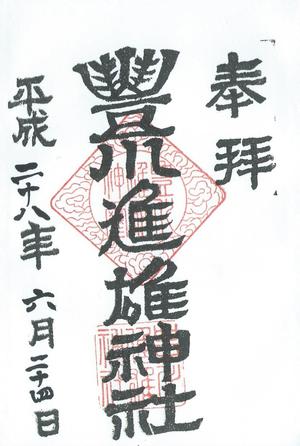 奉拝
豐川進雄神社
平成二十八年六月二十四日